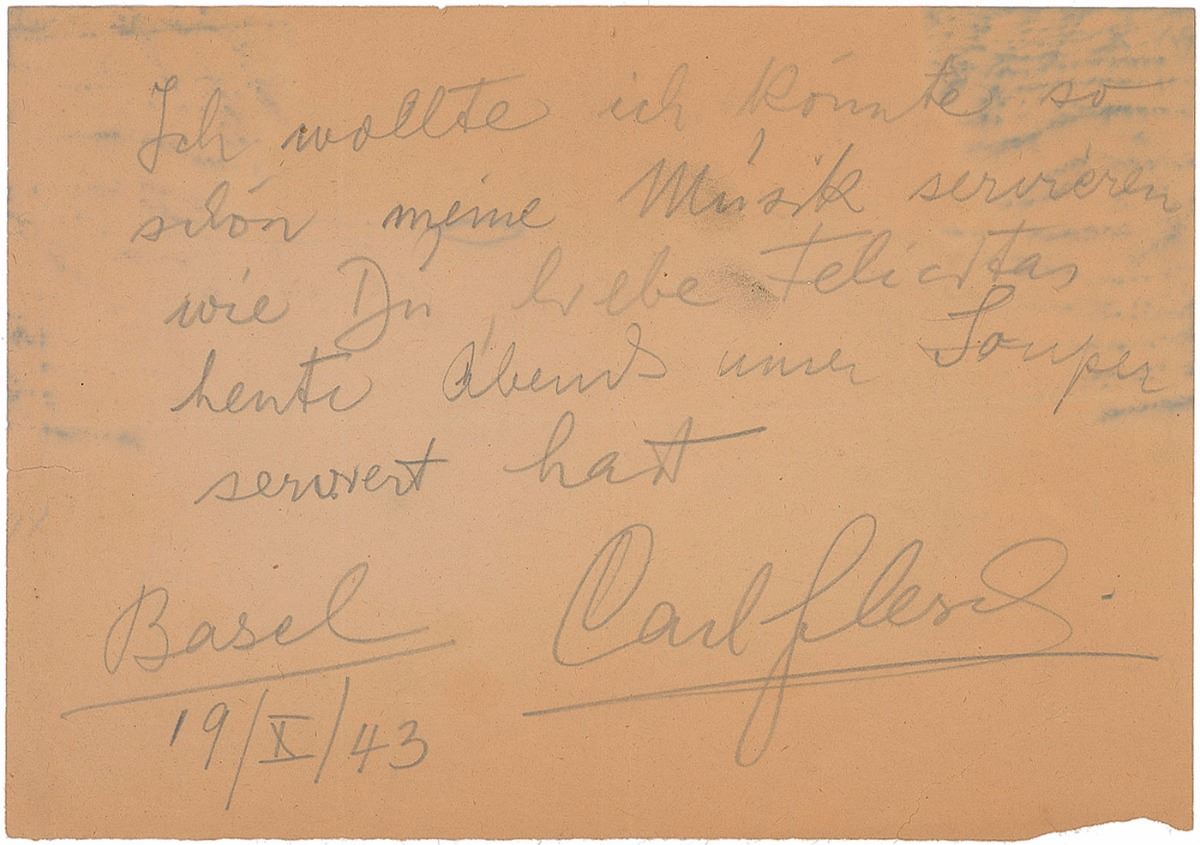 Ich wollte ich könnte so
schön meine Musik servieren
wie Du, liebe Felicitas
heute Abend unser Souper
serviert hast
Basel Carl Flesch.
19/X/43